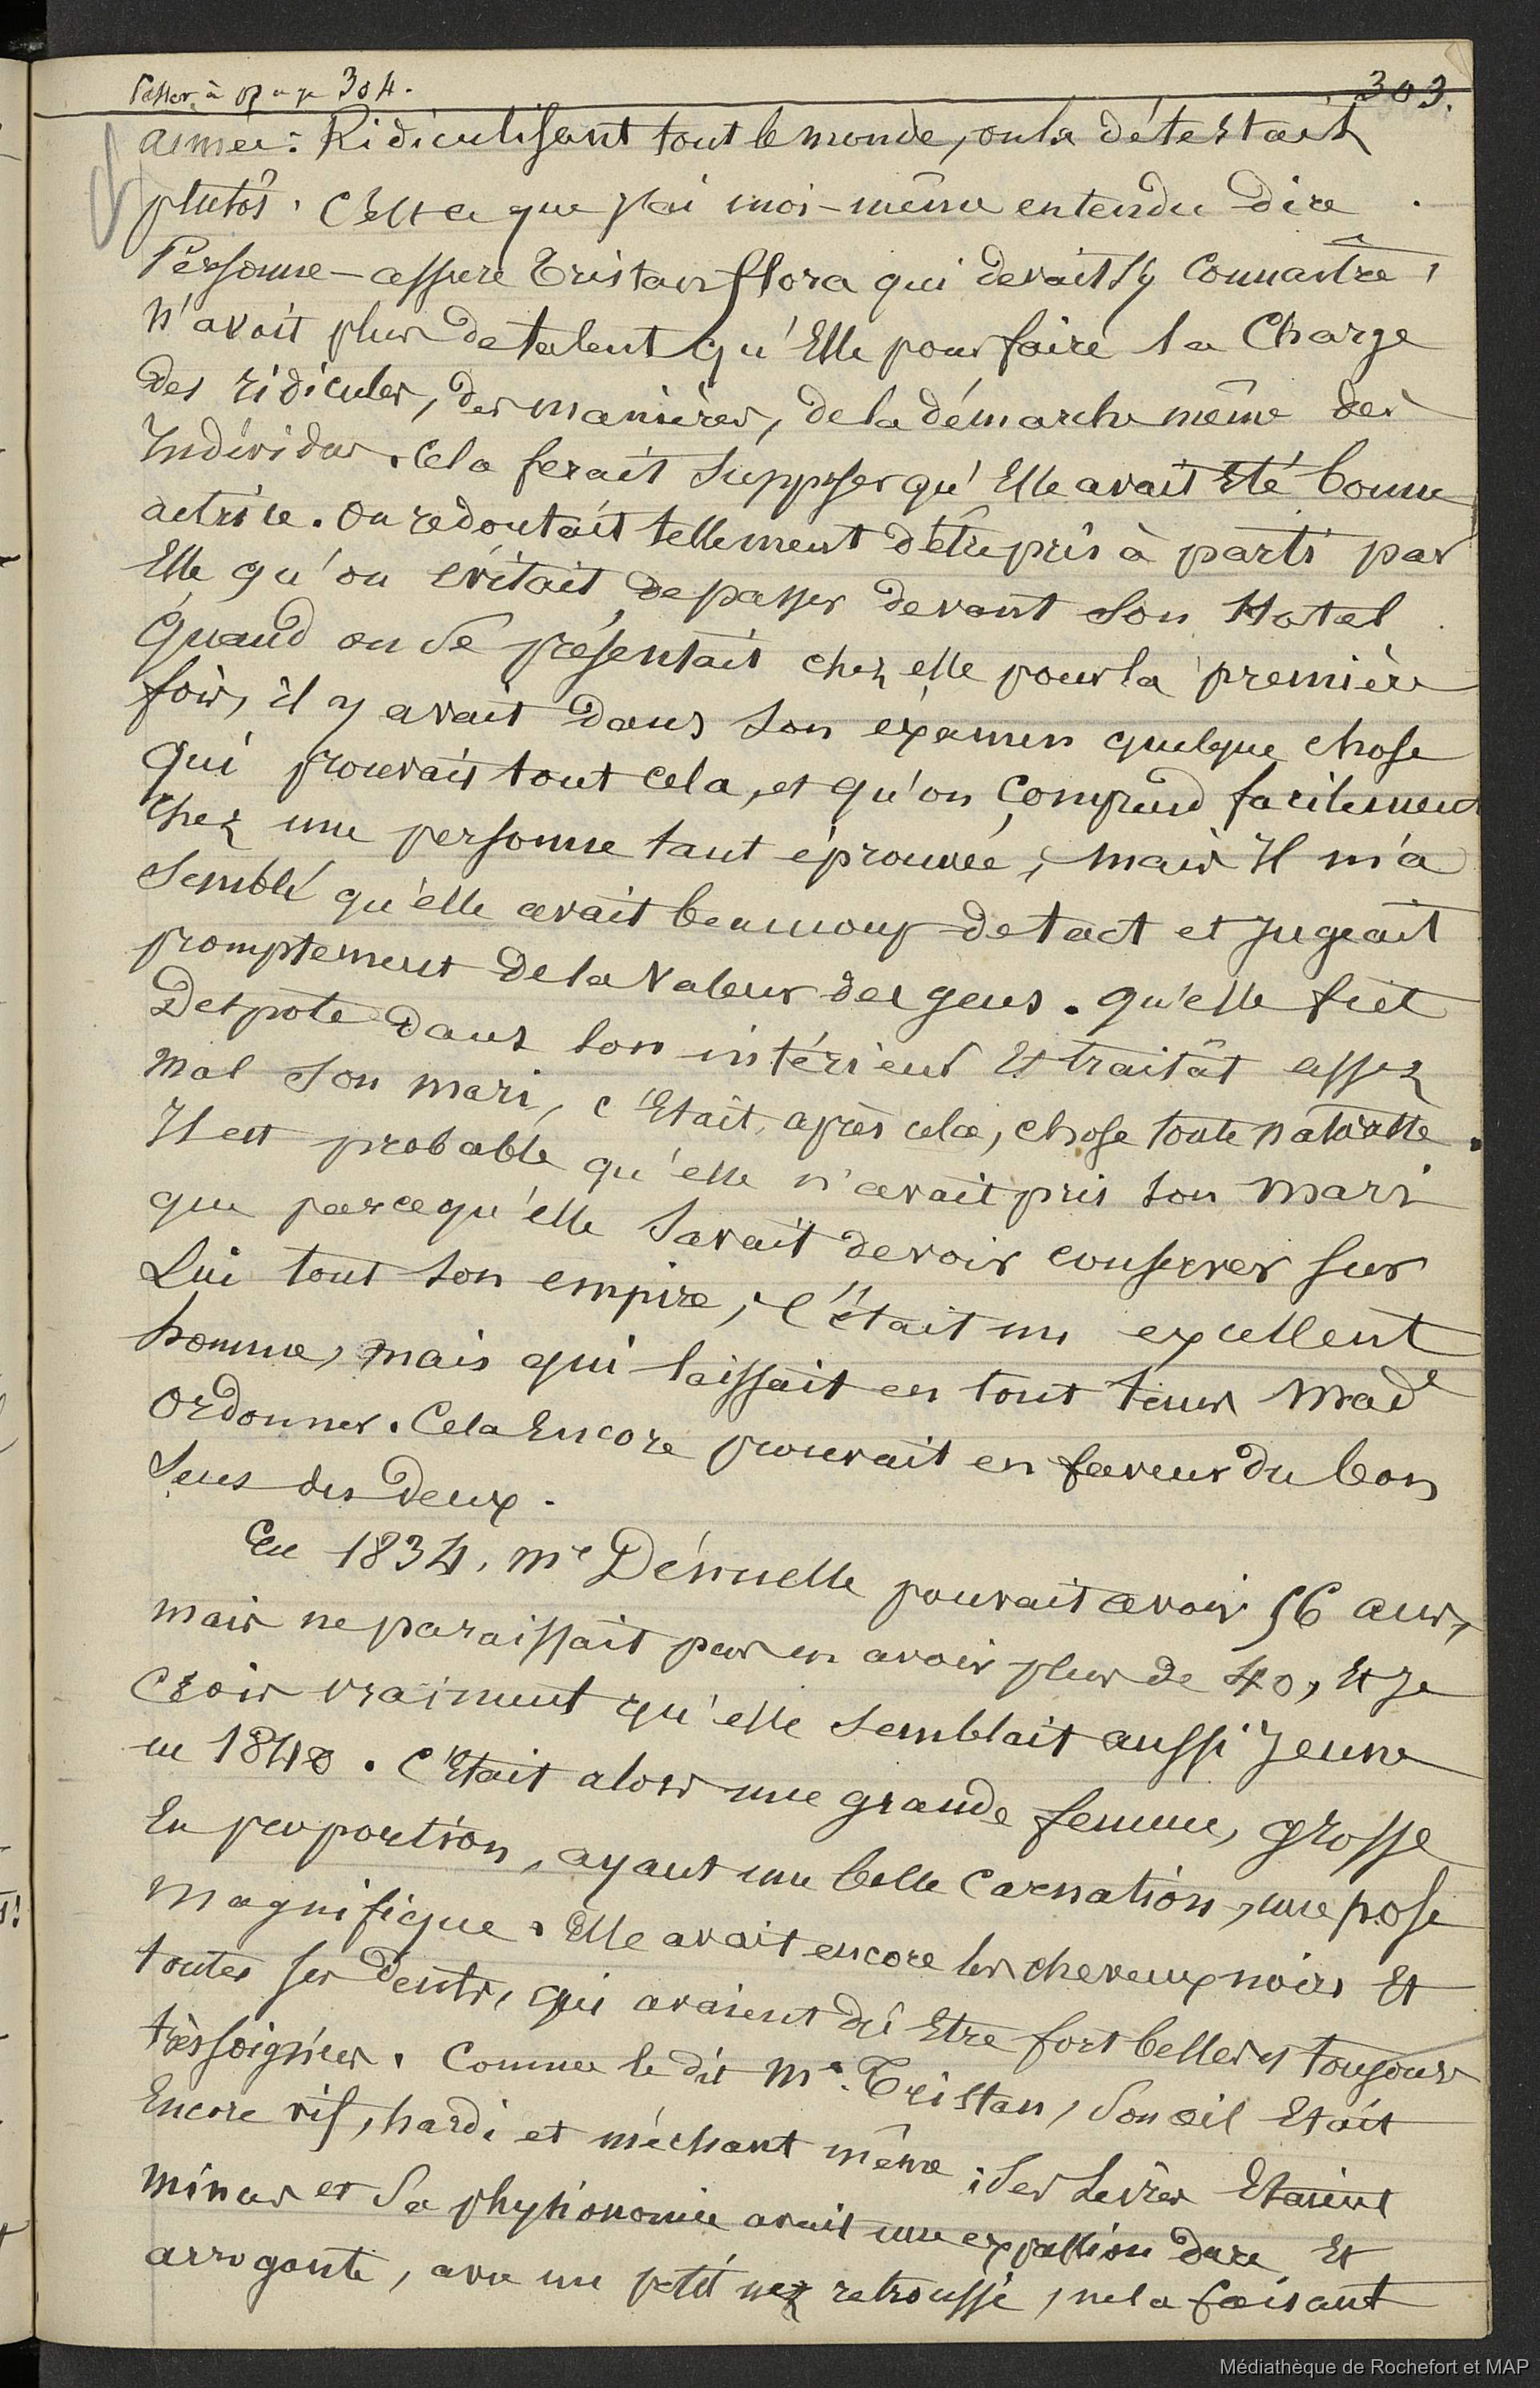 Passer à page 304.
303.
aimée : Ridiculisant tout le monde, on la détestait
plutôt. C'est ce que j'ai moi-même entendu dire.
Personne - assure Tristan flora qui devait s'y connaître,
N'avait plus de talent qu'Elle pour faire la Charge
des ridicules, des manières, de la démarche même des
Individus. Cela ferait supposer qu'Elle avait Eté bonne
actrice. On redoutait tellement d'être pris à parti par
Elle, qu'on évitait de passer devant son Hotel.
Quand on se présentait chez elle pour la première
fois, il y avait dans son éxamen quelque chose
qui prouvait tout cela, et qu'on comprend facilement
Chez une personne tant éprouvée ; mais Il m'a
semblé qu'elle avait beaucoup de tact et Jugeait
promptement de la Valeur des gens. qu'elle fut
Despote dans son intérieur Et traitât assez
Mal son mari, c'Etait, après cela, chose toute naturelle.
Il est probable qu'elle n'avait pris son mari
que parcequ'elle savait devoir conserver sur
Lui tout son empire ; C'était un excellent
homme, mais qui laissait en tout tems Made
Ordonner. Cela Encore prouvait en faveur du bon
sens des Deux.
En 1834, Me Dénuelle pouvait avoir 56 ans,
mais ne paraissait pas en avoir plus de 40, Et Je
Crois vraiment qu'elle semblait aussi Jeune
en 1840. C'Etait alors une grande femme, grosse
En proportion, ayant une belle Carnation, une pose
Magnifique. Elle avait encore les cheveux noirs Et
toutes ses dents, qui avaient dû Etre fort belles et toujours
très soignées. Comme le dit Me. Tristan, son œil Etait
Encore vif, hardi et méchant même ; ses Lèvres Etaient
Minces et Sa physionomie avait une expression dure Et
arrogante, avec un petit nez retroussé, ne la faisant
Médiathèque de Rochefort et MAP